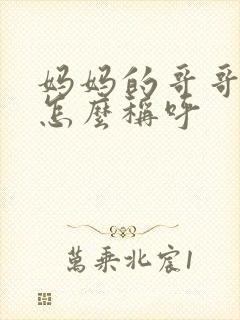 妈妈的哥哥
怎麼稱呼
萬乘北宸1